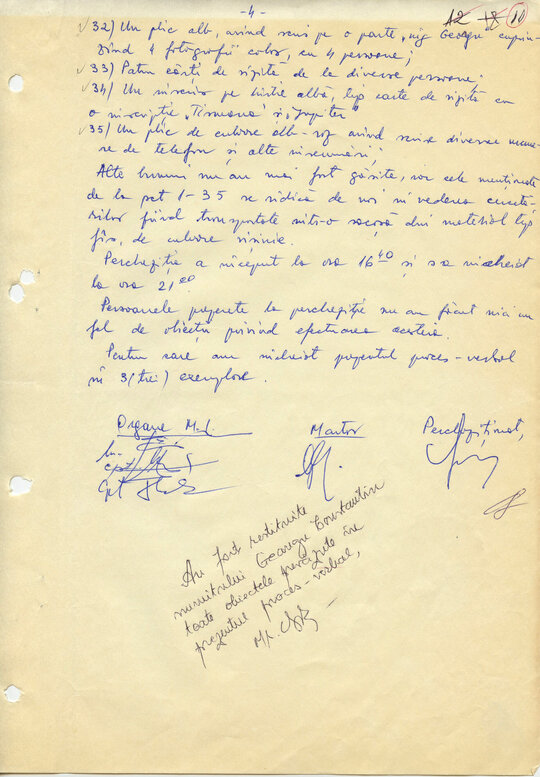 - 4 -
12 18 10
32) Un plic alb, avînd scris pe o parte „ing George cuprin-
zînd 4 fotografii color, cu 4 persoane;
33) Patru cărți de vizită de la diverse persoane;
34) Un înscris pe hîrtie albă, tip carte de vizită cu
o inscripție „Tismana" și „Jupiter"
35) Un plic de culoare alb-roz avînd scrise diverse nume-
re de telefon și alte însemnări;
Alte bunuri nu au mai fost găsite, iar cele menționate
de la pct 1-35 se ridică de noi în vederea cercetă-
rilor fiind transportate într-o sacoșă din material tip
fîș, de culoare vișinie.
Percheziția a început la ora 16 40 și s-a încheiat
la ora 21 00
Persoanele prezente la percheziție nu au făcut nici un
fel de obiecții privind efectuarea acesteia.
Pentru care am încheiat prezentul proces-verbal
în 3(trei) exemplare.
Organe M.I. Martor Percheziționat,
cpt
Cpt
Au fost restituite
numitului George Constantin
toate obiectele prevăzute în
prezentul proces-verbal,